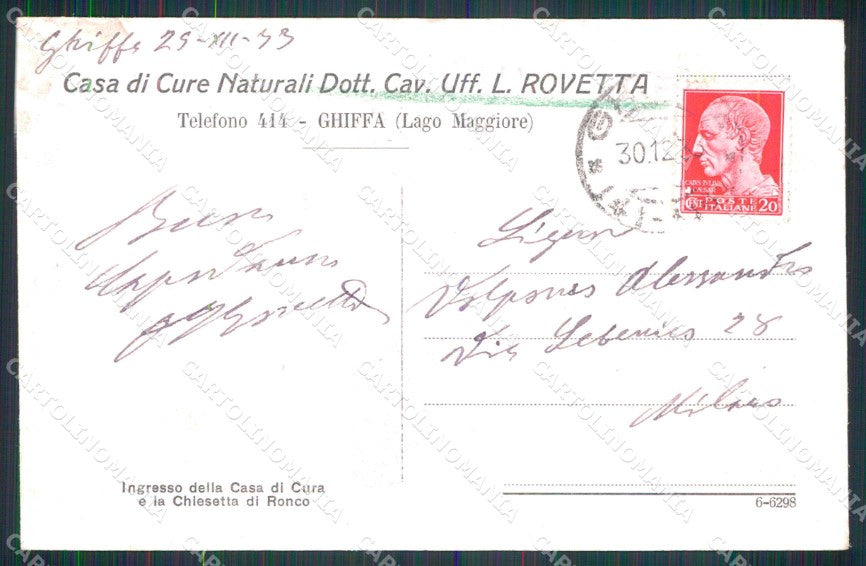 Ghiffa 29-XII-33
Casa di Cure Naturali Dott. Cav. Uff. L. ROVETTA
Telefono 414 - GHIFFA (Lago Maggiore)
30.12.3
CAIUS IVLIUS
CAESAR
POSTE
CENT ITALIANE 20
Buon
Alessandro
Via Sebenico 28
Milano
Ingresso della Casa di Cura
e la Chiesetta di Ronco
6-6298
CARTOLINOMANIA